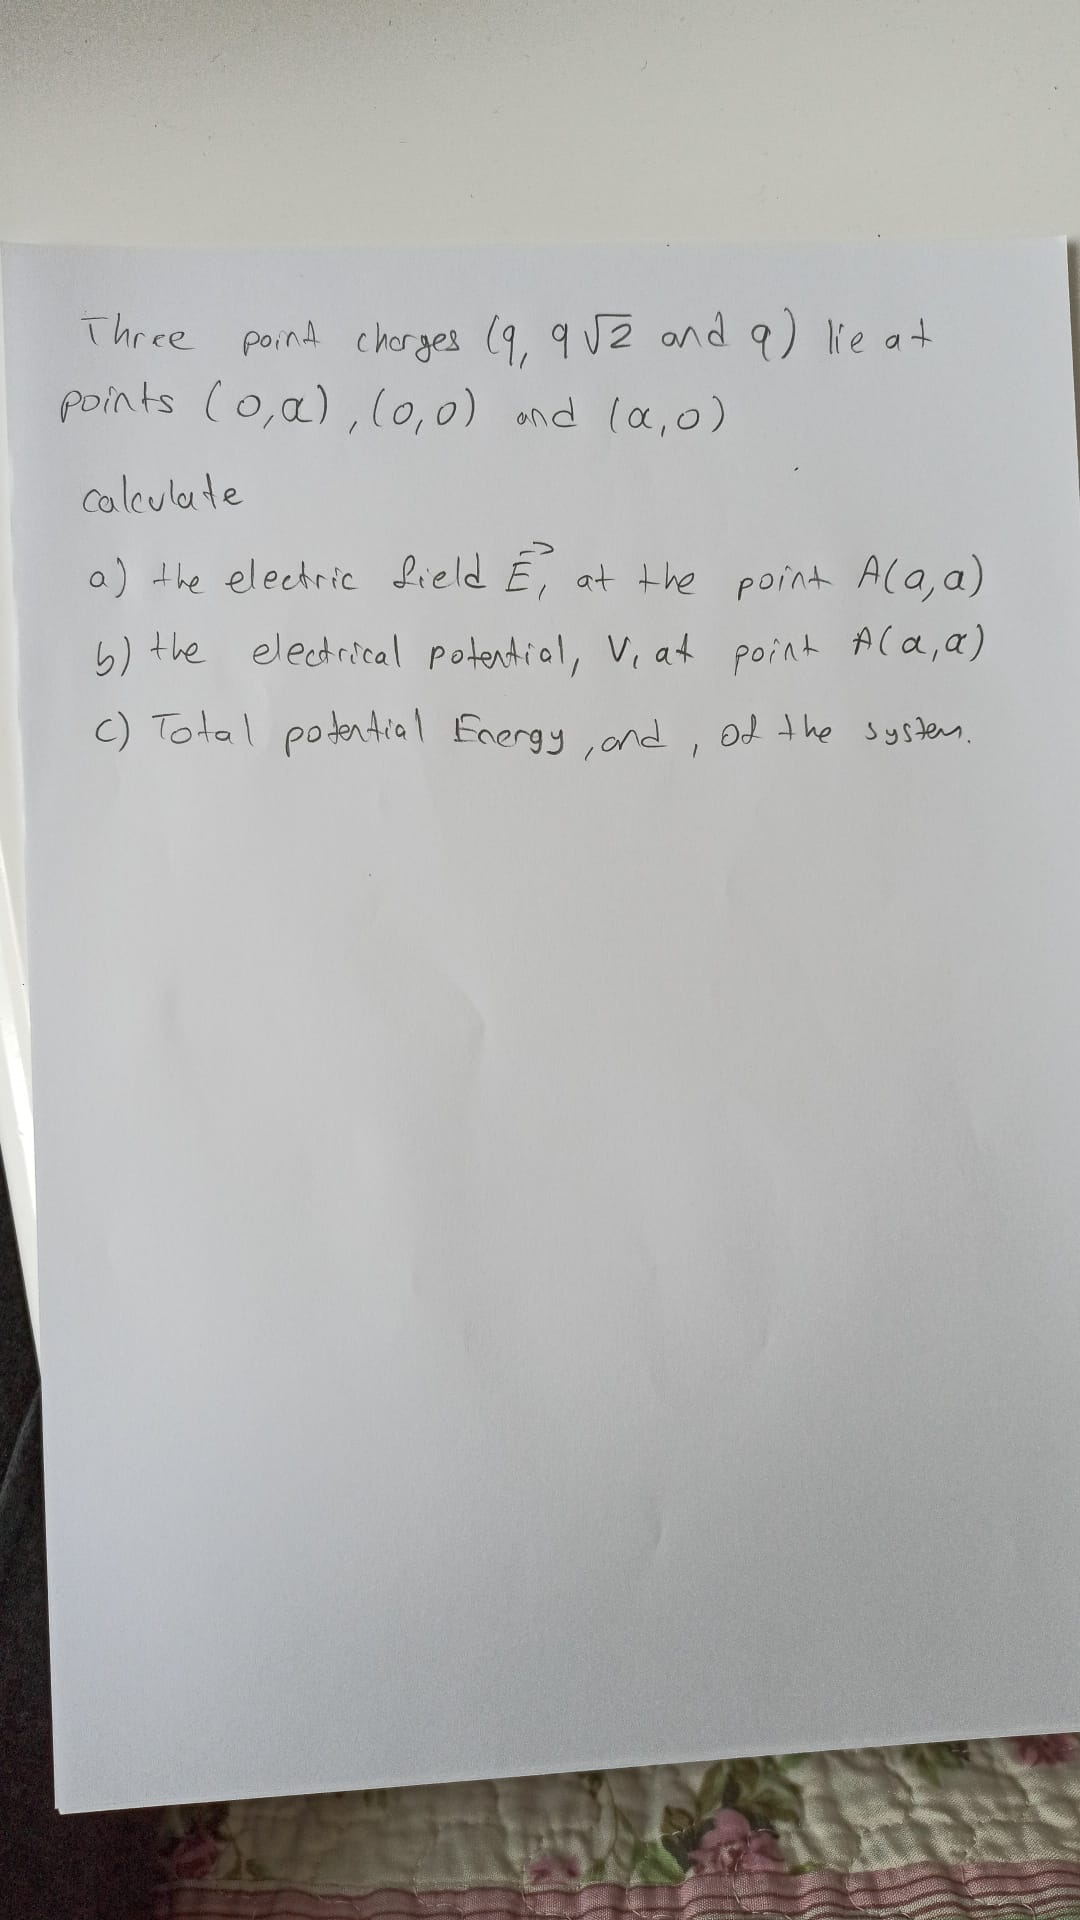 Three point charges (q, q√2 and q) lie at
points (0,a), (0,0) and (a,0)
calculate
a) the electric field E⃗, at the point A(a,a)
b) the electrical potential, V, at point A(a,a)
c) Total potential Energy, and, of the system.